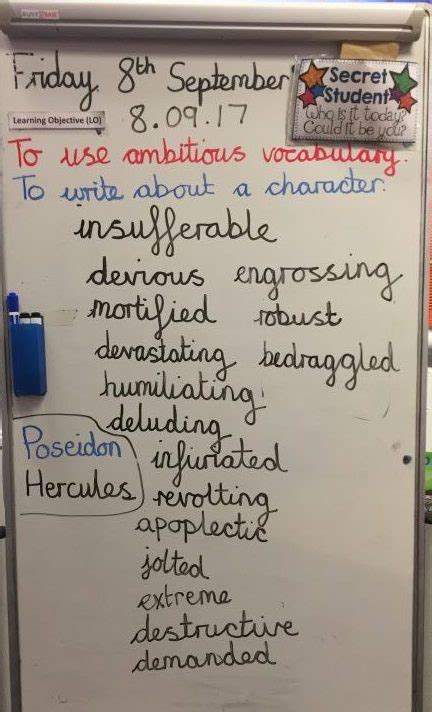 Friday 8th September
8.09.17
Secret
Student
Who is it today?
Could it be you?
Learning Objective (LO)
To use ambitious vocabulary.
To write about a character.
insufferable
devious engrossing
mortified robust
devastating bedraggled
humiliating
deluding
Poseidon
Hercules
infuriated
revolting
apoplectic
jolted
extreme
destructive
demanded